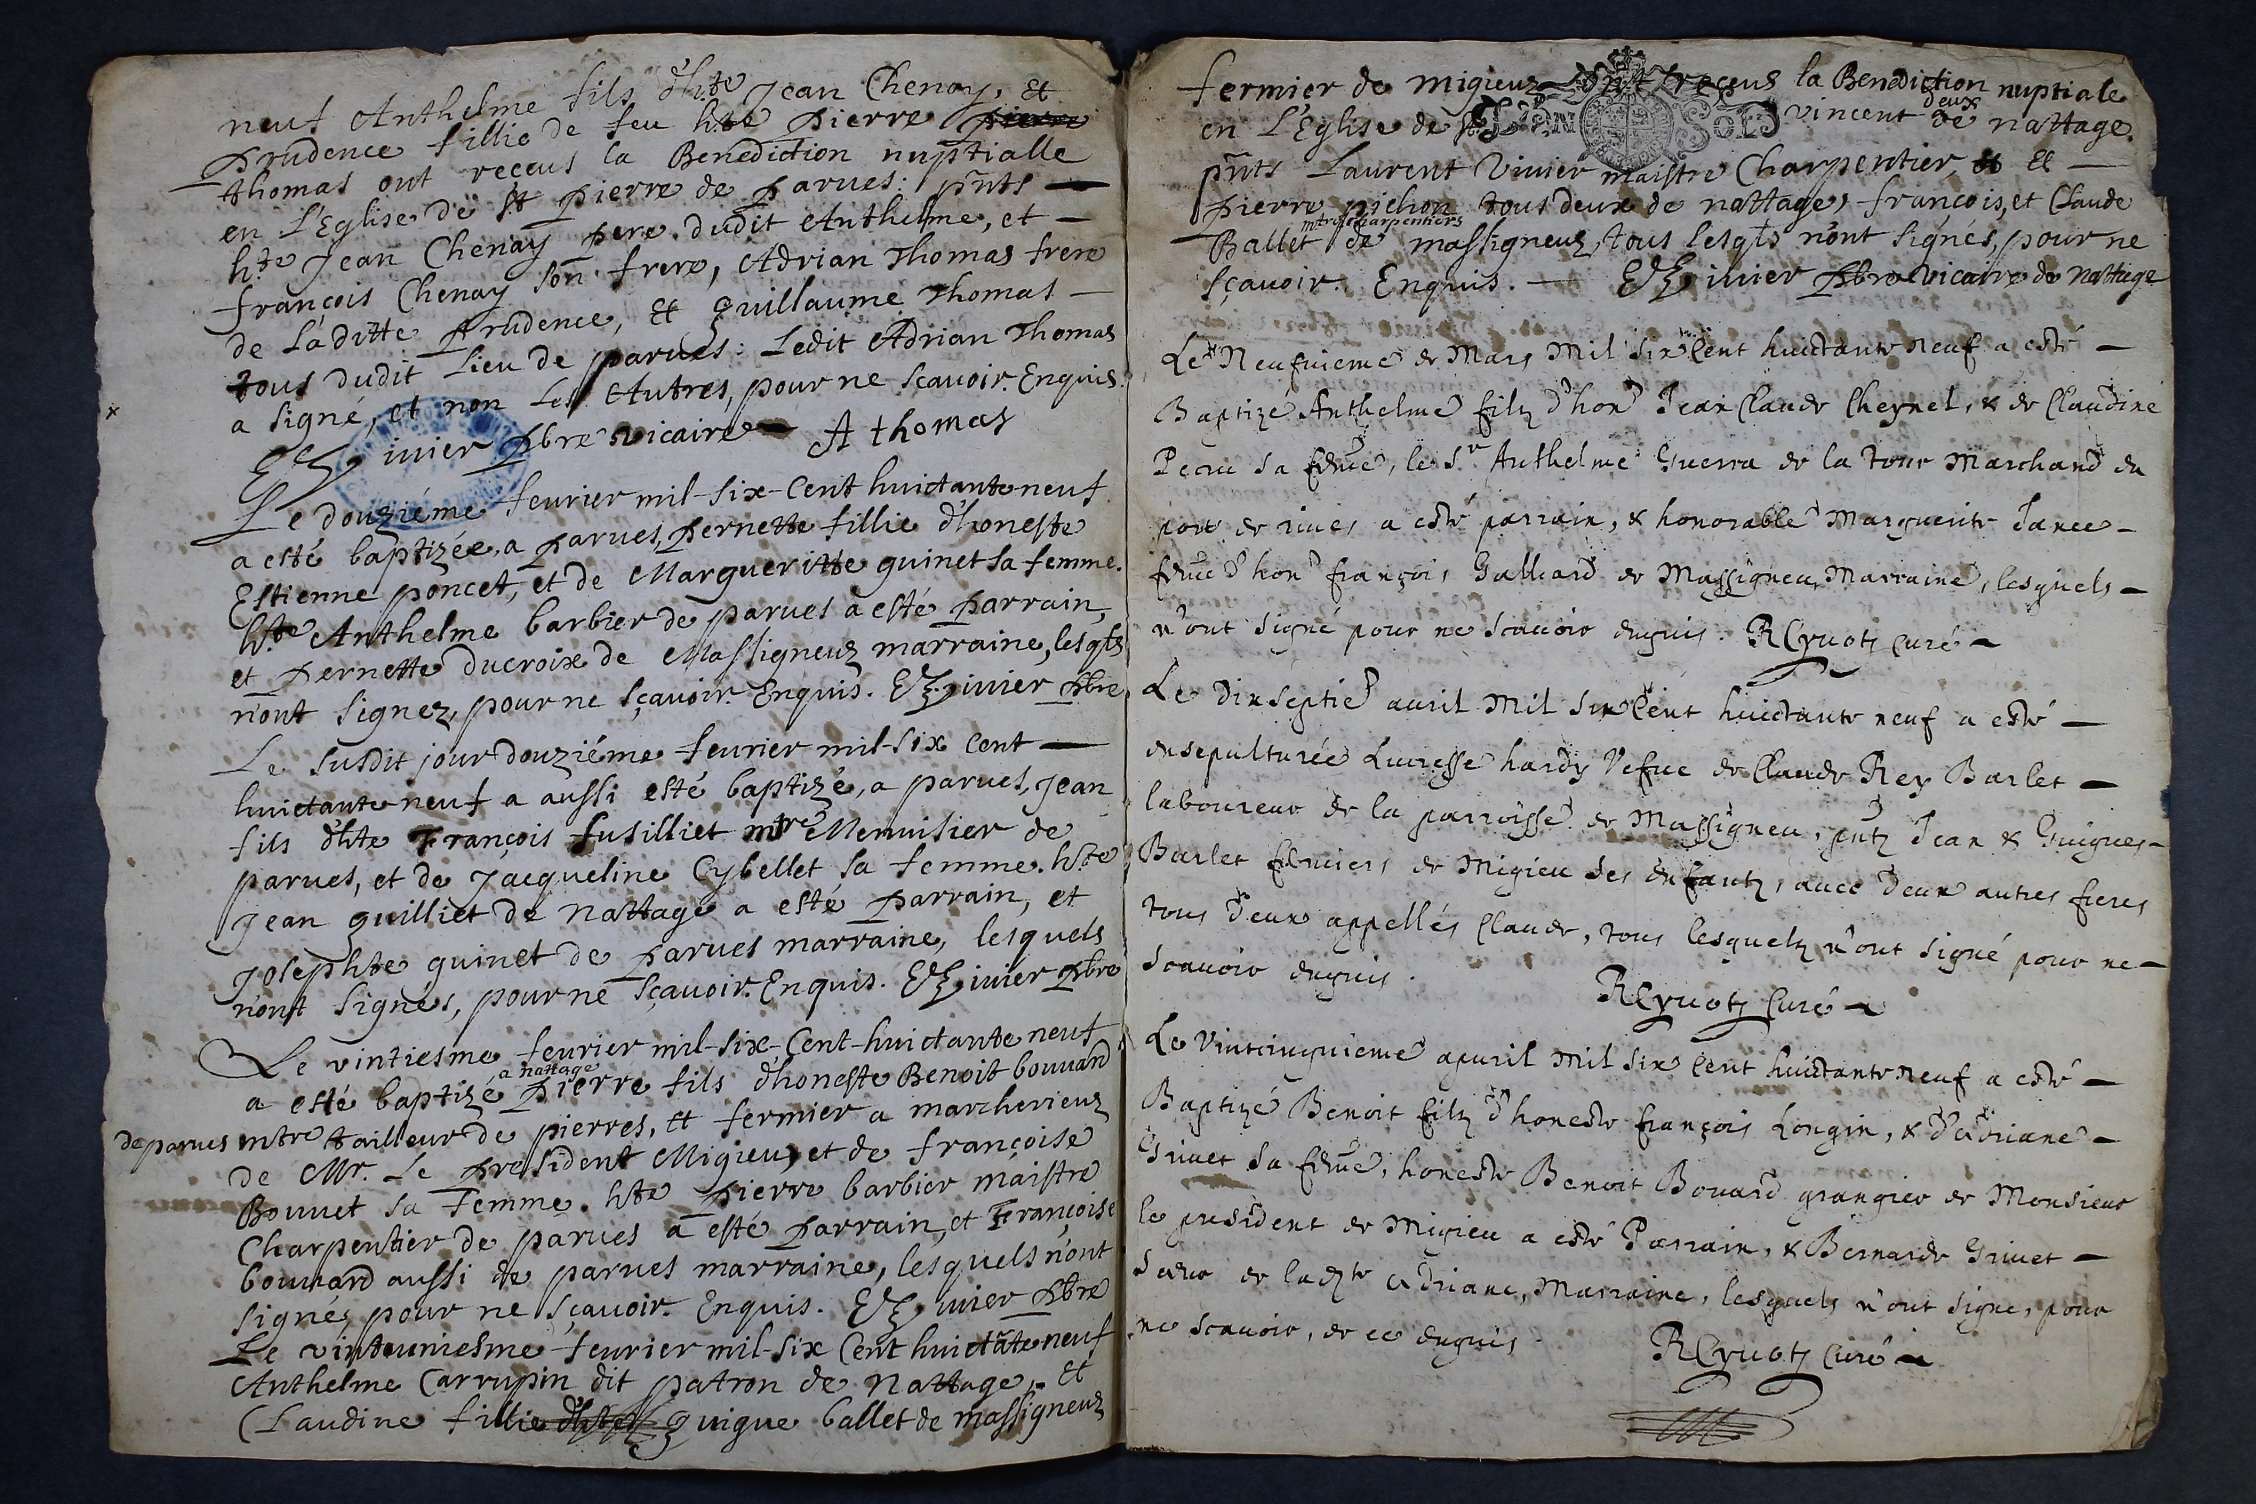 neuf Anthelme fils d'hte Jean Chenay, et
prudence fillie de feu hte pierre pierre
thomas ont receus la Benediction nuptialle
en L'Eglise de st pierre de parves: pnts —
hte Jean Chenay pere dudit Anthelme, et —
françois Chenay son frere, Adrian Thomas frere
de laditte prudence, et guillaume Thomas —
tous dudit Lieu de parves: Ledit Adrian Thomas
a signé, et non Les Autres, pour ne sçavoir. Enquis.
ivier pbre vicaire — A thomas
Le douziéme fevrier mil-six-Cent huictante neuf
a esté baptizée, a parves, pernette fillie d'honeste
Estienne poncet, et de Margueritte guinet sa femme.
hte Anthelme barbier de parves a esté parrain,
et pernette ducroix de Massigneuz marraine, lesqls
n'ont signez, pour ne sçavoir. Enquis. ivier pbre
Le susdit jour douziéme fevrier mil-six cent —
huictante neuf a aussi esté baptizé, a parves, Jean
fils d'hte François fusilliet mtre Menuisier de
parves, et de Jacqueline Cybellet sa femme. hte
Jean guilliet de nattage a esté parrain, et
Josephte guinet de parves marraine, lesquels
n'ont signés, pour ne sçavoir. Enquis. ivier pbre
Le vintiesme fevrier mil-six-Cent-huictante neuf
a nattage
a esté baptizé pierre fils d'honeste Benoit bouvard
de parves mtre tailleur de pierres, et fermier a marcherieuz
de Mr. Le president Migieu, et de françoise
Bouvet sa femme. hte pierre barbier maistre
Charpentier de parves a esté parrain, et Françoise
bouvard aussi de parves marraine, lesquels n'ont
signés pour ne sçavoir. Enquis. ivier pbre
Le vintuniesme fevrier mil-six Cent huictãte neuf
Anthelme Carrupin dit patron de nattage, et
Claudine fillie d'hte guigue ballet de massigneuz
fermier de migieuz ont receus la Benediction nuptiale
deux
en L'Eglise de st vincent de nattage.
pñts Laurent Vivier maistre Charpentier, et et —
pierre pichon tous deux de nattage, françois, et Claude
mtres charpentiers
Ballet de massigneuz, tous lesqls n'ont signés, pour ne
sçavoir. Enquis. — ivier pbre vicaire de nattage
Le Neufvieme de Mars Mil six Cent huictante neuf a esté —
Baptizé Anthelme filz d'hon Jean Claude Cheynel, & de Claudine
sa feme, le Sr Anthelme Guerra de la Tour Marchand du
port de rives a esté parrain, & honorable Marguerite Janee —
feme d'hon françois Galliard de Massigneu Marraine, lesquels —
n'ont signé pour ne scavoir enquis. curé —
Le dixseptie avril Mil six Cent huictante neuf a esté —
ensepulturée Lucresse hardy Vefve de Claude Rey Barlet —
laboureur de la parroisse de Massigneu, pntz Jean & Guigues —
Barlet fermiers de Migieu ses enfantz, avec deux autres freres
tous deux appellés Claude, tous lesquelz n'ont signé pour ne —
scavoir enquis. Curé —
Le Vintcinquieme apuril Mil six Cent huictante neuf a esté —
Baptizé Benoit filz d'honeste françois Longin, & d'Adriane —
Grivet sa feme, honeste Benoit Bouard grangier de Monsieur
le president de Migieu a esté Parrain, & Bernarde Grivet —
soeur de ladte Adriane, Marraine, lesquelz n'ont signe, pour
ne scavoir, de ce enquis. Curé —